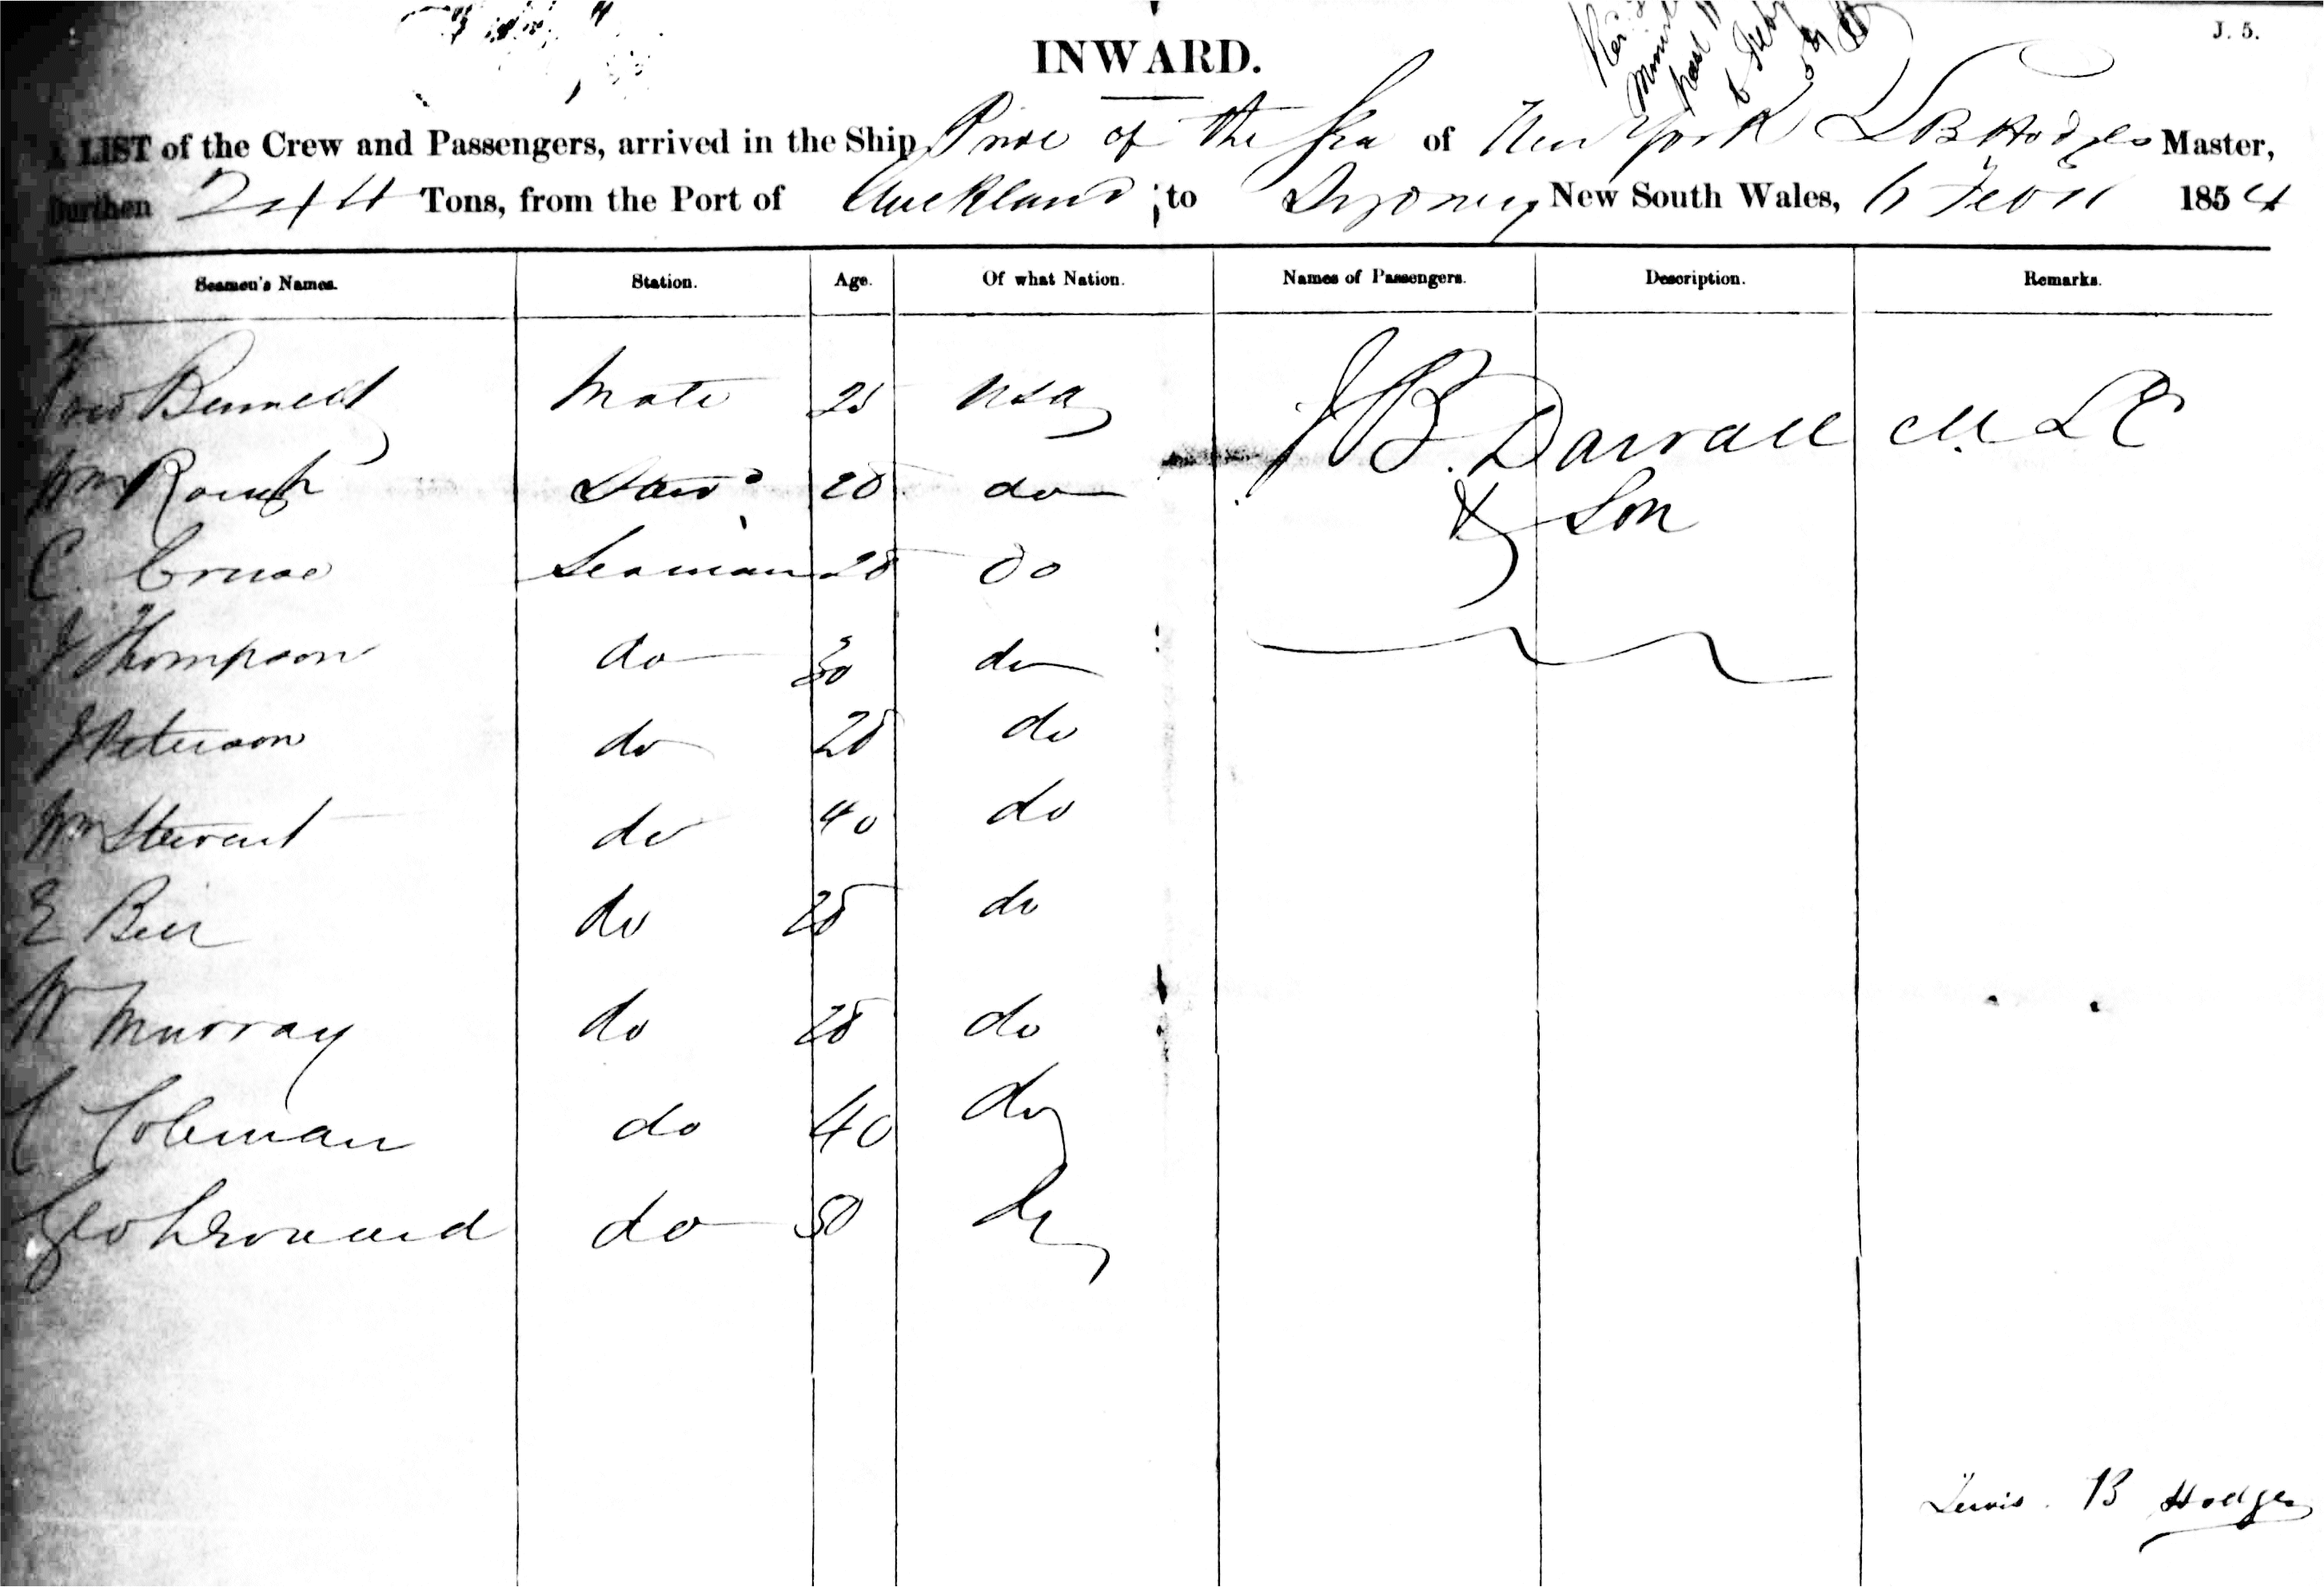 J. 5.
INWARD.
A LIST of the Crew and Passengers, arrived in the Ship Pride of the Sea of New York L B Hodges Master,
Burthen 244 Tons, from the Port of Auckland to Sydney New South Wales, 6 Feby 1854
Seamen's Names. Station. Age. Of what Nation. Names of Passengers. Description. Remarks.
Mate 25 USA J B. Darvall M L C
Wm Stewd 28 do & Son
C. Cruse Seaman 28 do
J Thompson do 30 do
J Peterson do 28 do
Wm Stewart do 40 do
E do 28 do
W Murray do 28 do
C Coleman do 40 do
Geo do 30 do
Lewis. B Hodges